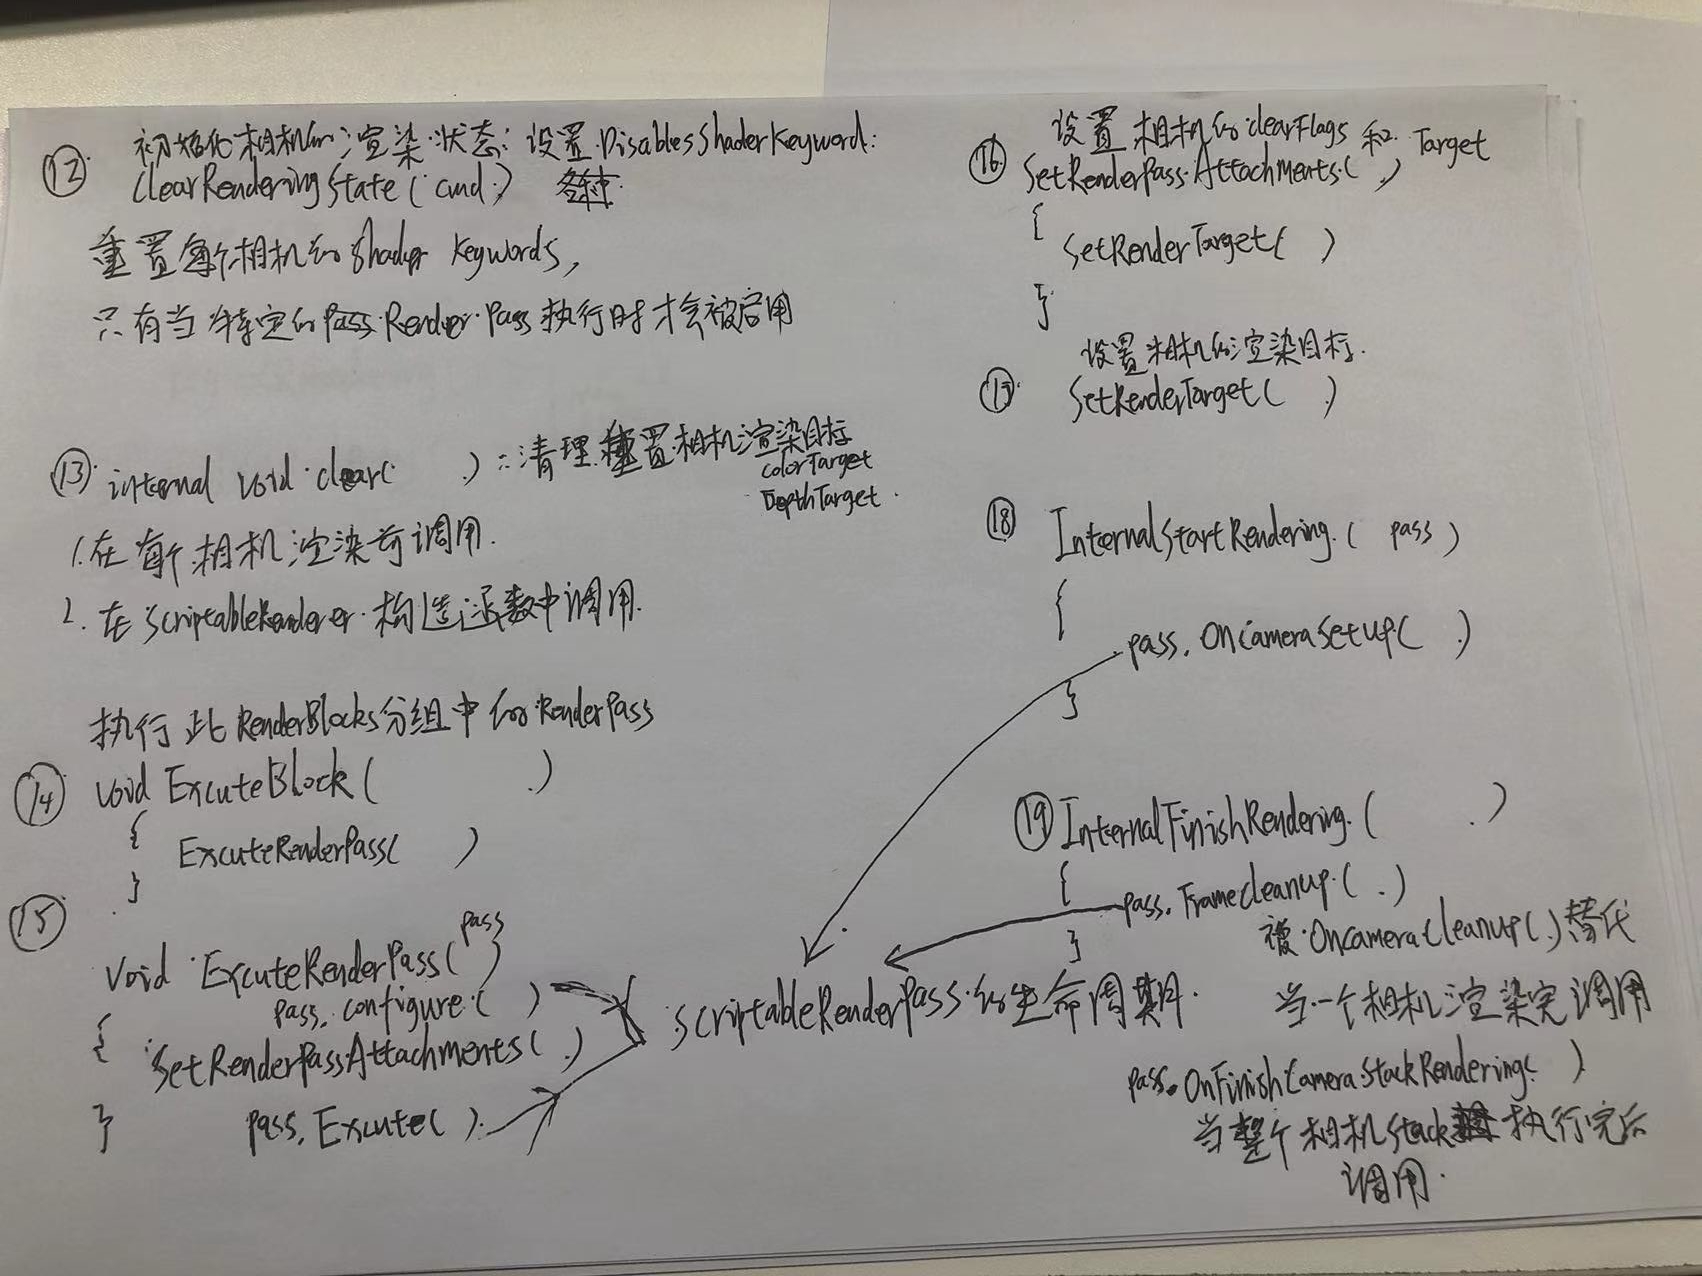 ⑫ 初始化相机的渲染状态: 设置 DisablesShaderKeyword:
ClearRenderingState(cmd)
重置每个相机的 Shader Keywords,
只有当特定的 Pass Render Pass 执行时才会被启用
⑬ internal void clear( ) : 清理 重置相机渲染目标
colorTarget
DepthTarget.
1. 在每个相机渲染前调用.
2. 在 ScriptableRenderer 构造函数中调用.
执行此 RenderBlocks 分组中的 RenderPass
⑭ void ExcuteBlock( )
{
ExcuteRenderPass( )
}
⑮ void ExcuteRenderPass( pass )
pass.configure( )
{ SetRenderPassAttachments( )
} pass.Excute( )
ScriptableRenderPass 的生命周期.
设置相机的 clearFlags 和 Target
⑯ SetRenderPassAttachments( )
{
SetRenderTarget( )
}
设置相机的渲染目标.
⑰ SetRenderTarget( )
⑱ InternalStartRendering( pass )
{
pass.OnCameraSetup( )
}
⑲ InternalFinishRendering( )
{
pass.FrameCleanup( )
} 被 OnCameraCleanup( ) 替代
当一个相机渲染完调用
pass.OnFinishCameraStackRendering( )
当整个相机 Stack 执行完后
调用.